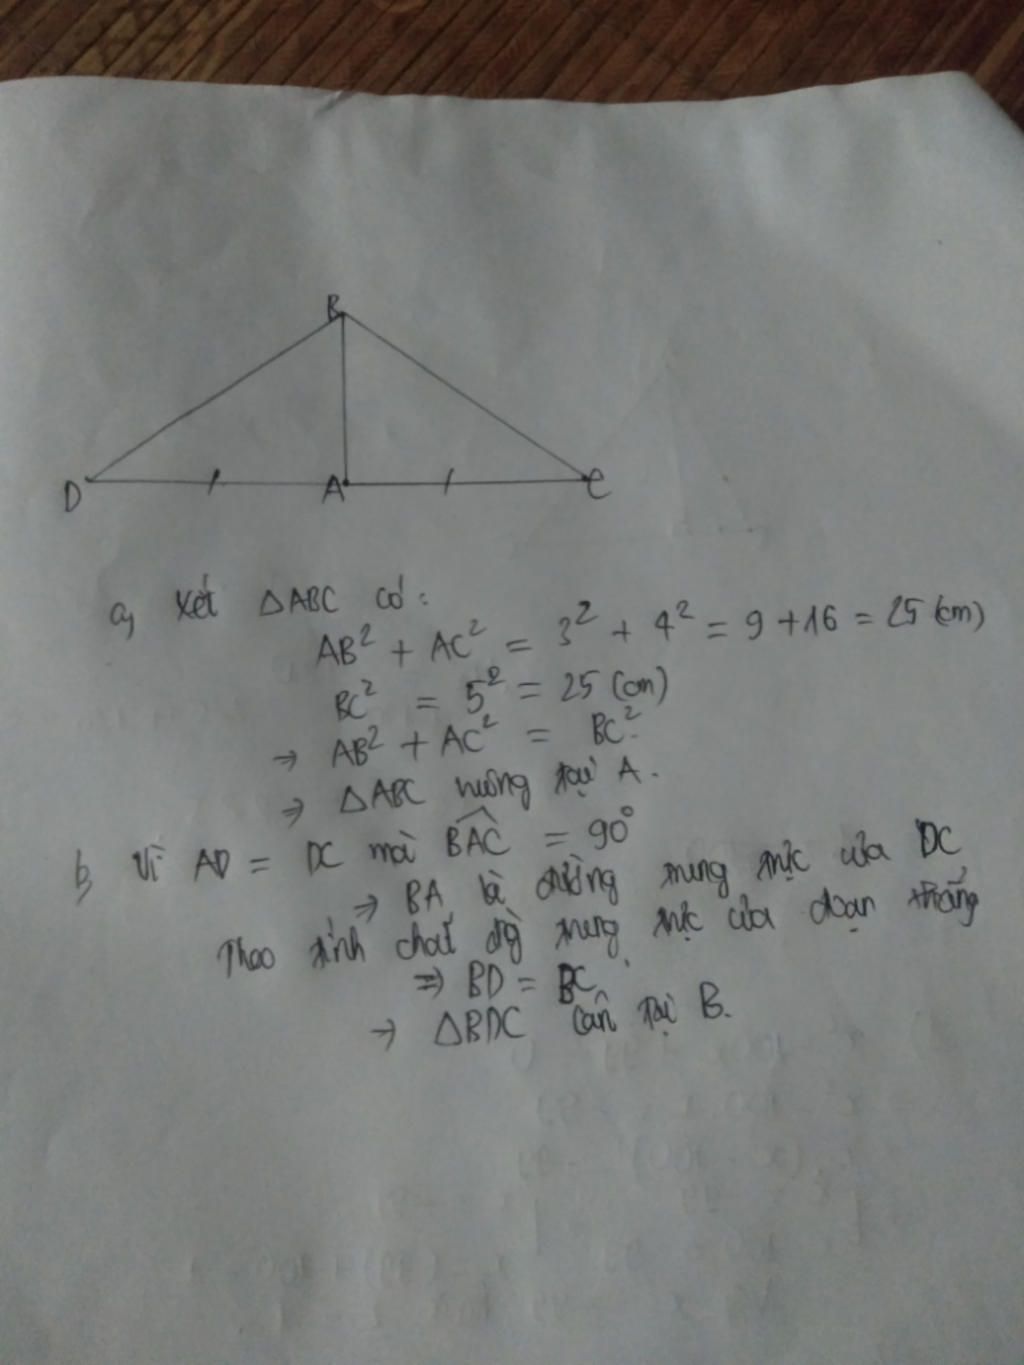 B
D A C
a, Xét △ABC có:
AB² + AC² = 3² + 4² = 9 + 16 = 25 (cm)
BC² = 5² = 25 (cm)
⇒ AB² + AC² = BC².
⇒ △ABC vuông tại A.
b, Vì AD = DC mà BAC = 90°
⇒ BA là đường trung trực của DC
Theo tính chất đg trung trực của đoạn thẳng
⇒ BD = BC
⇒ △BDC cân tại B.